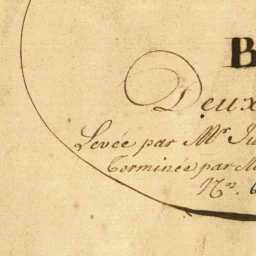 B
Deux
Levée par Mr. Ju
Terminée par M